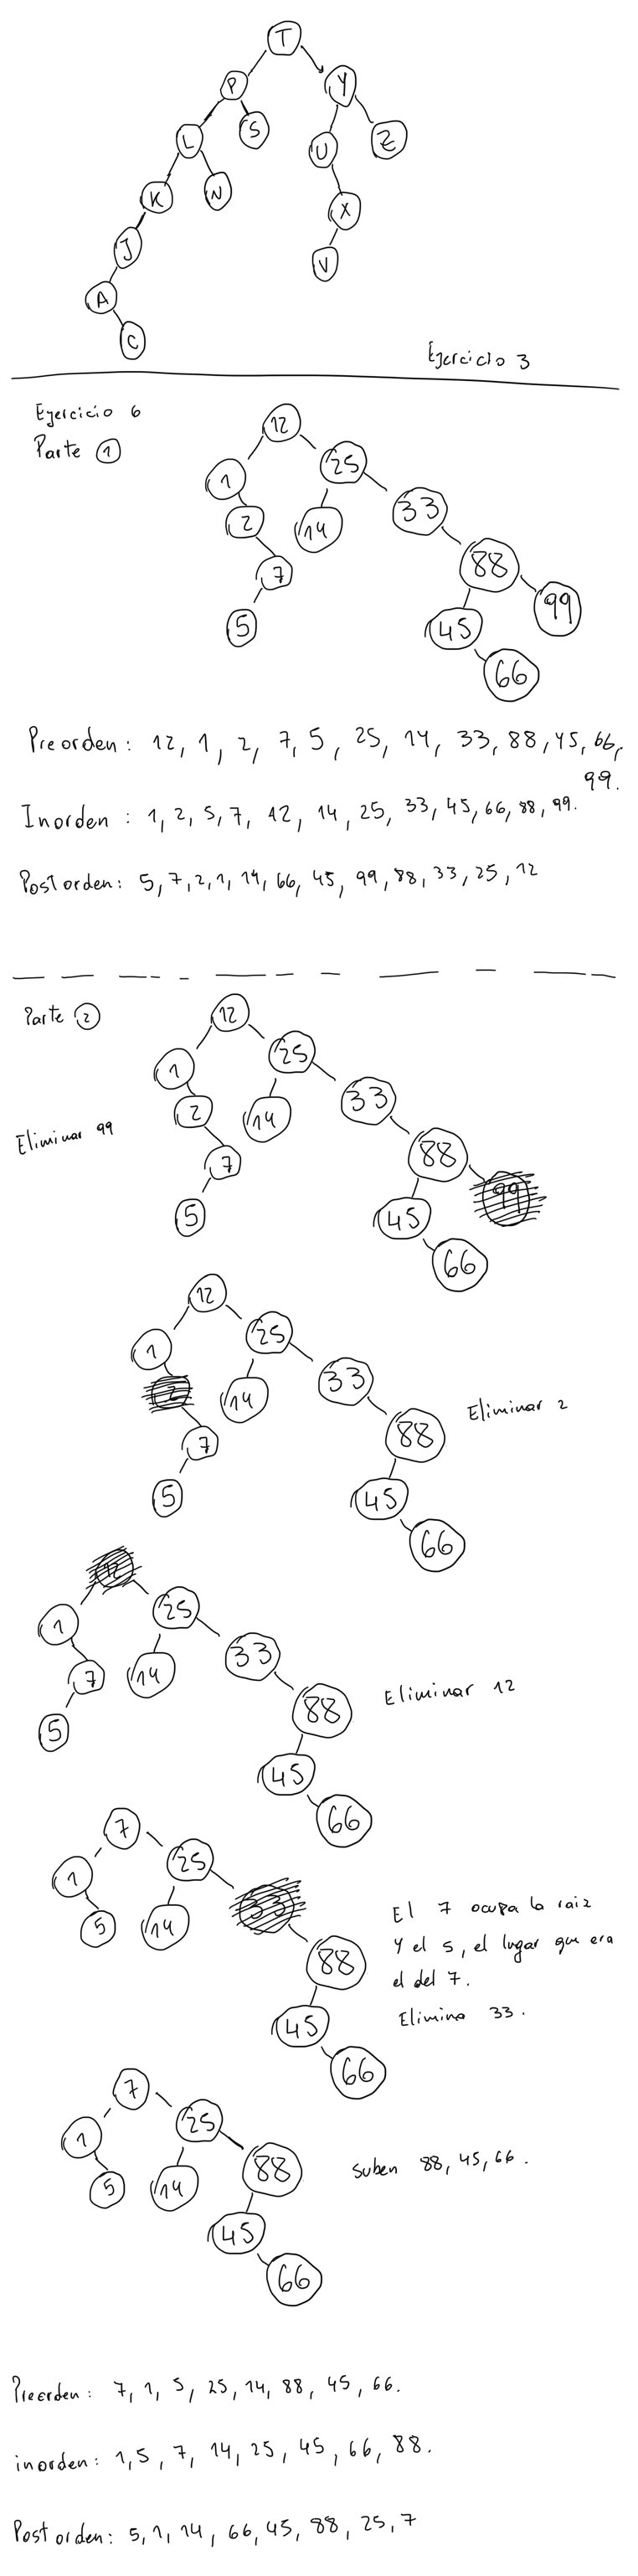 T
P Y
L S U Z
K N X
J V
A
C
Ejercicio 3
Ejercicio 6
Parte 1
12
1 25
2 14 33
7 88
5 45 99
66
Preorden: 12, 1, 2, 7, 5, 25, 14, 33, 88, 45, 66,
99.
Inorden : 1, 2, 5, 7, 12, 14, 25, 33, 45, 66, 88, 99.
Postorden: 5, 7, 2, 1, 14, 66, 45, 99, 88, 33, 25, 12
Parte 2
12
1 25
2 14 33
Eliminar 99
7 88
5 45 99
66
12
1 25
2 14 33
Eliminar 2
7 88
5 45
66
12
1 25
7 14 33
Eliminar 12
5 88
45
66
7
1 25
5 14 33
El 7 ocupa la raiz
y el 5, el lugar que era
el del 7.
Elimino 33.
88
45
66
7
1 25
5 14 88
Suben 88, 45, 66.
45
66
Preorden: 7, 1, 5, 25, 14, 88, 45, 66.
inorden: 1, 5, 7, 14, 25, 45, 66, 88.
Postorden: 5, 1, 14, 66, 45, 88, 25, 7